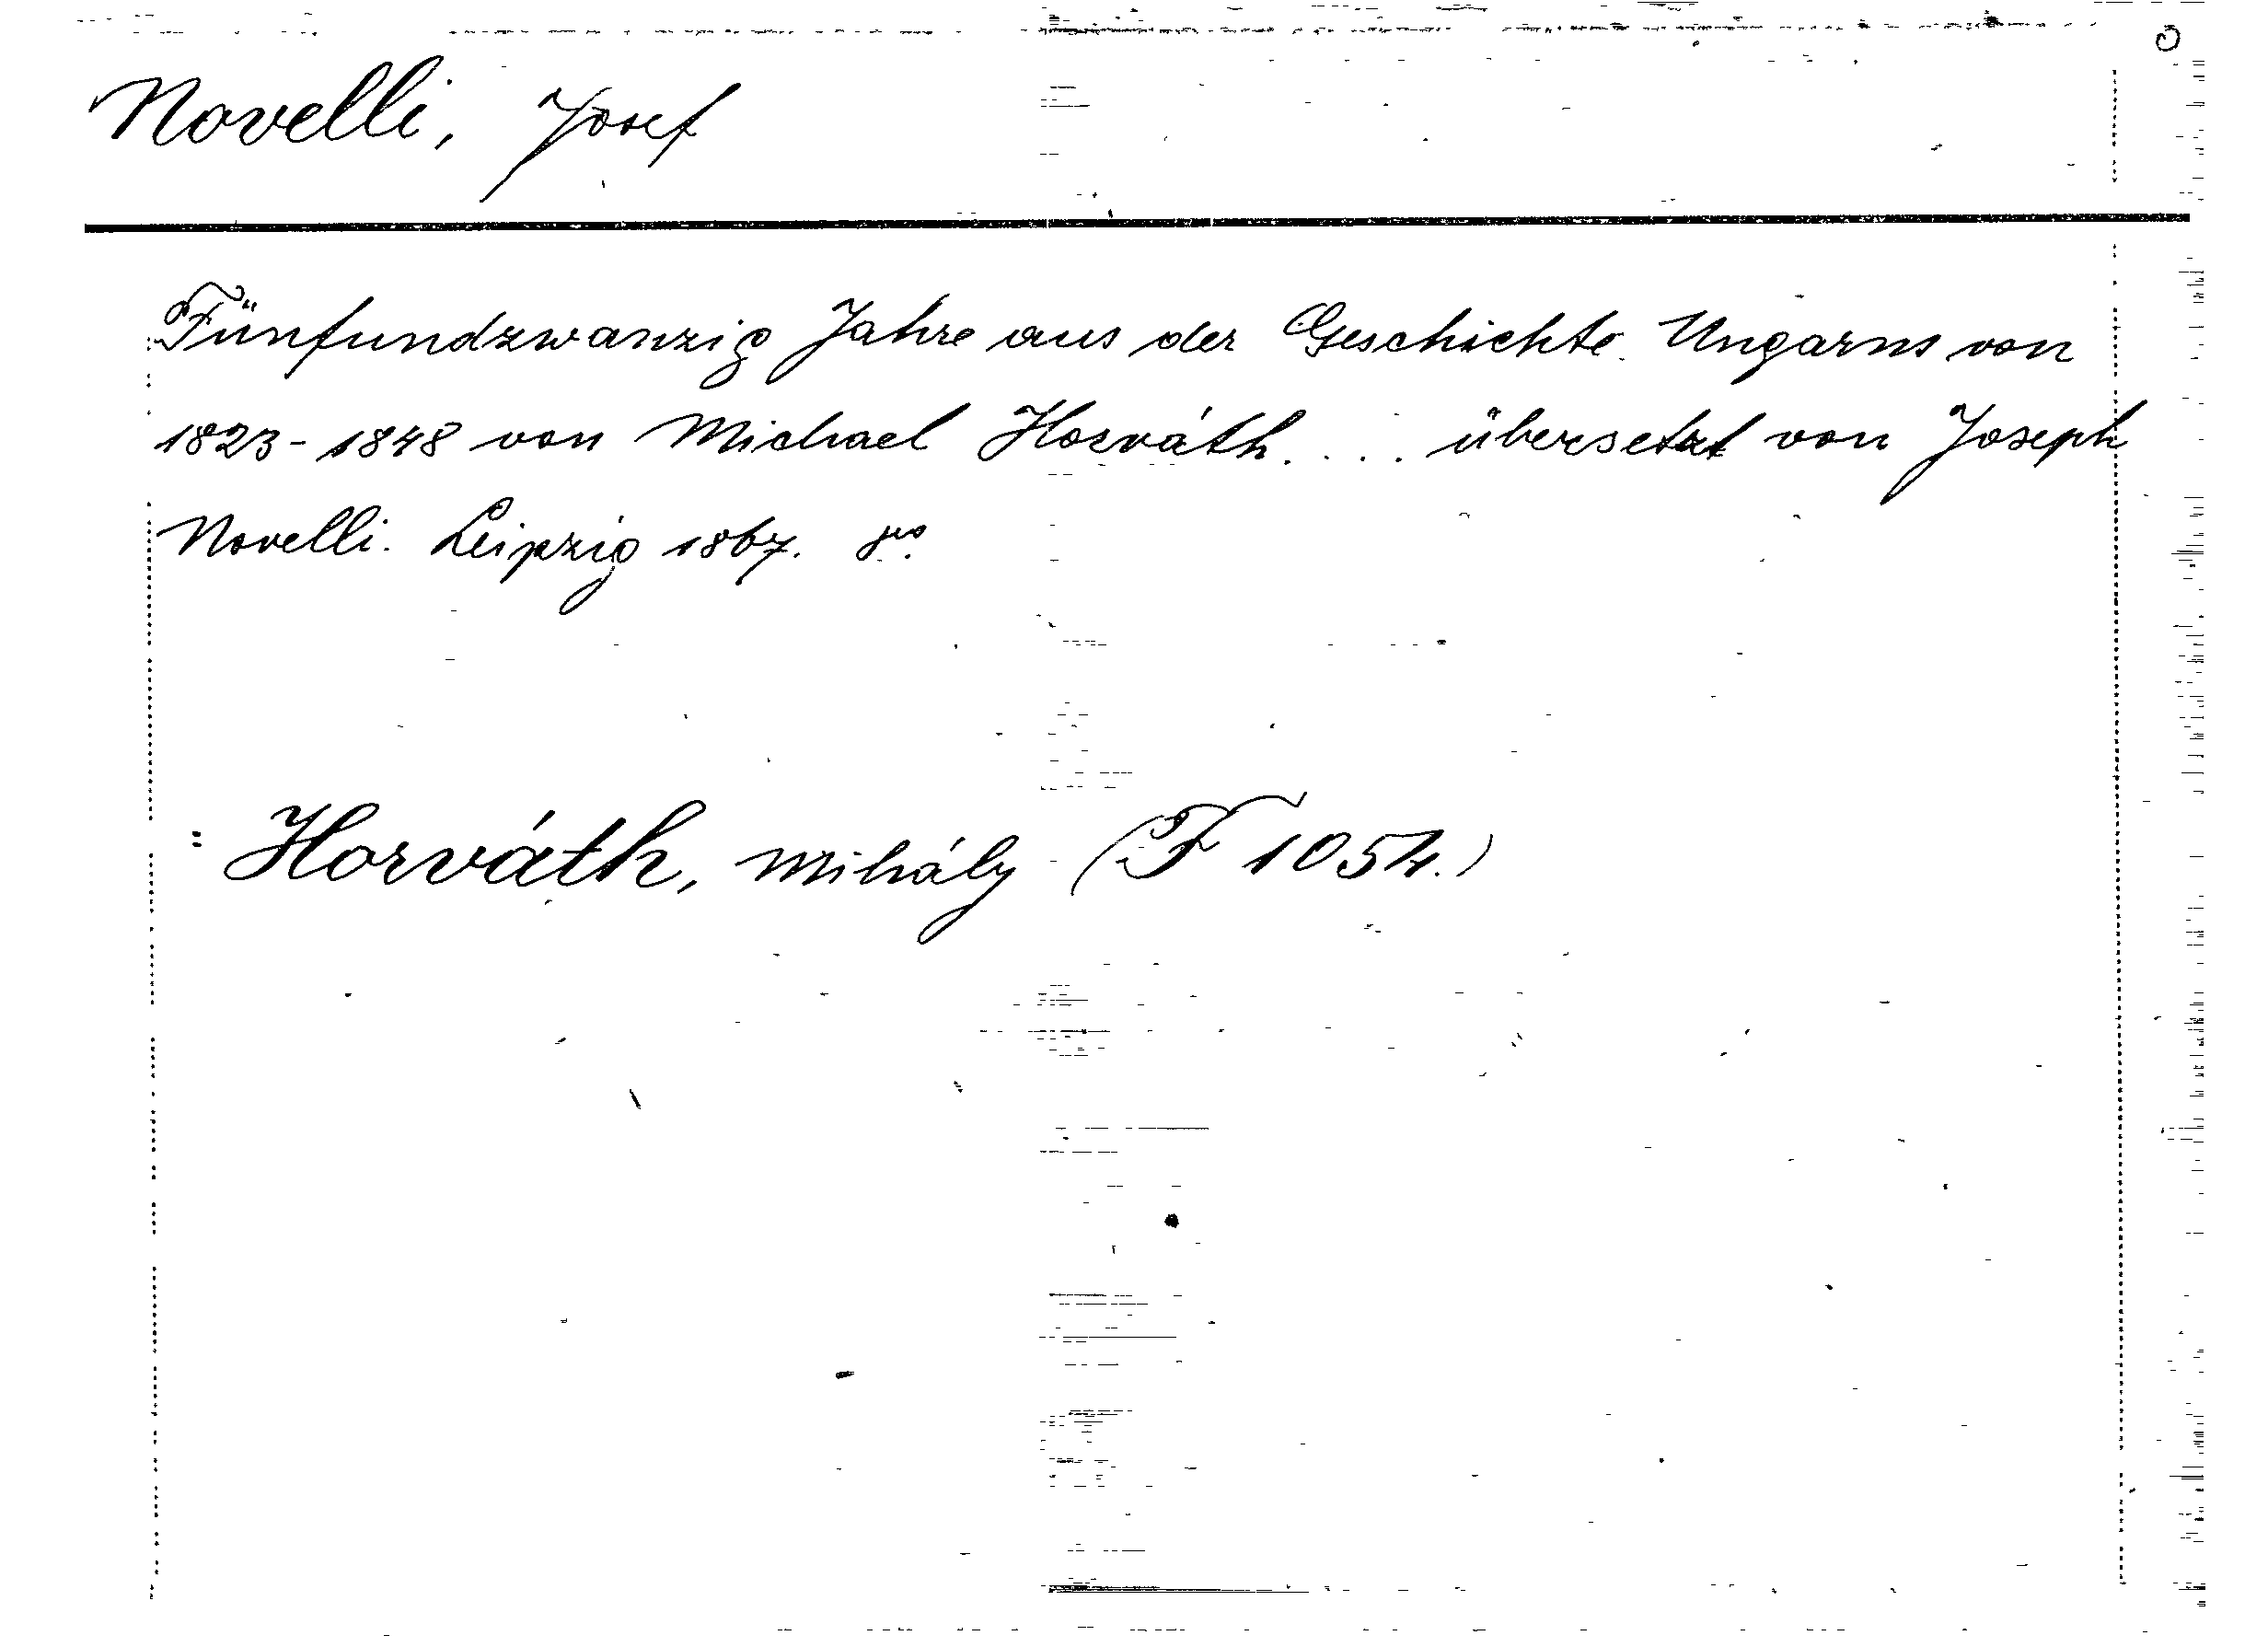 Novelli, Josef
Fünfundzwanzig Jahre aus der Geschichte Ungarns von
1823-1848 von Michael Horváth.... übersetzt von Joseph
Novelli. Leipzig 1867. 8º.
: Horváth, Mihály (F 1054.)